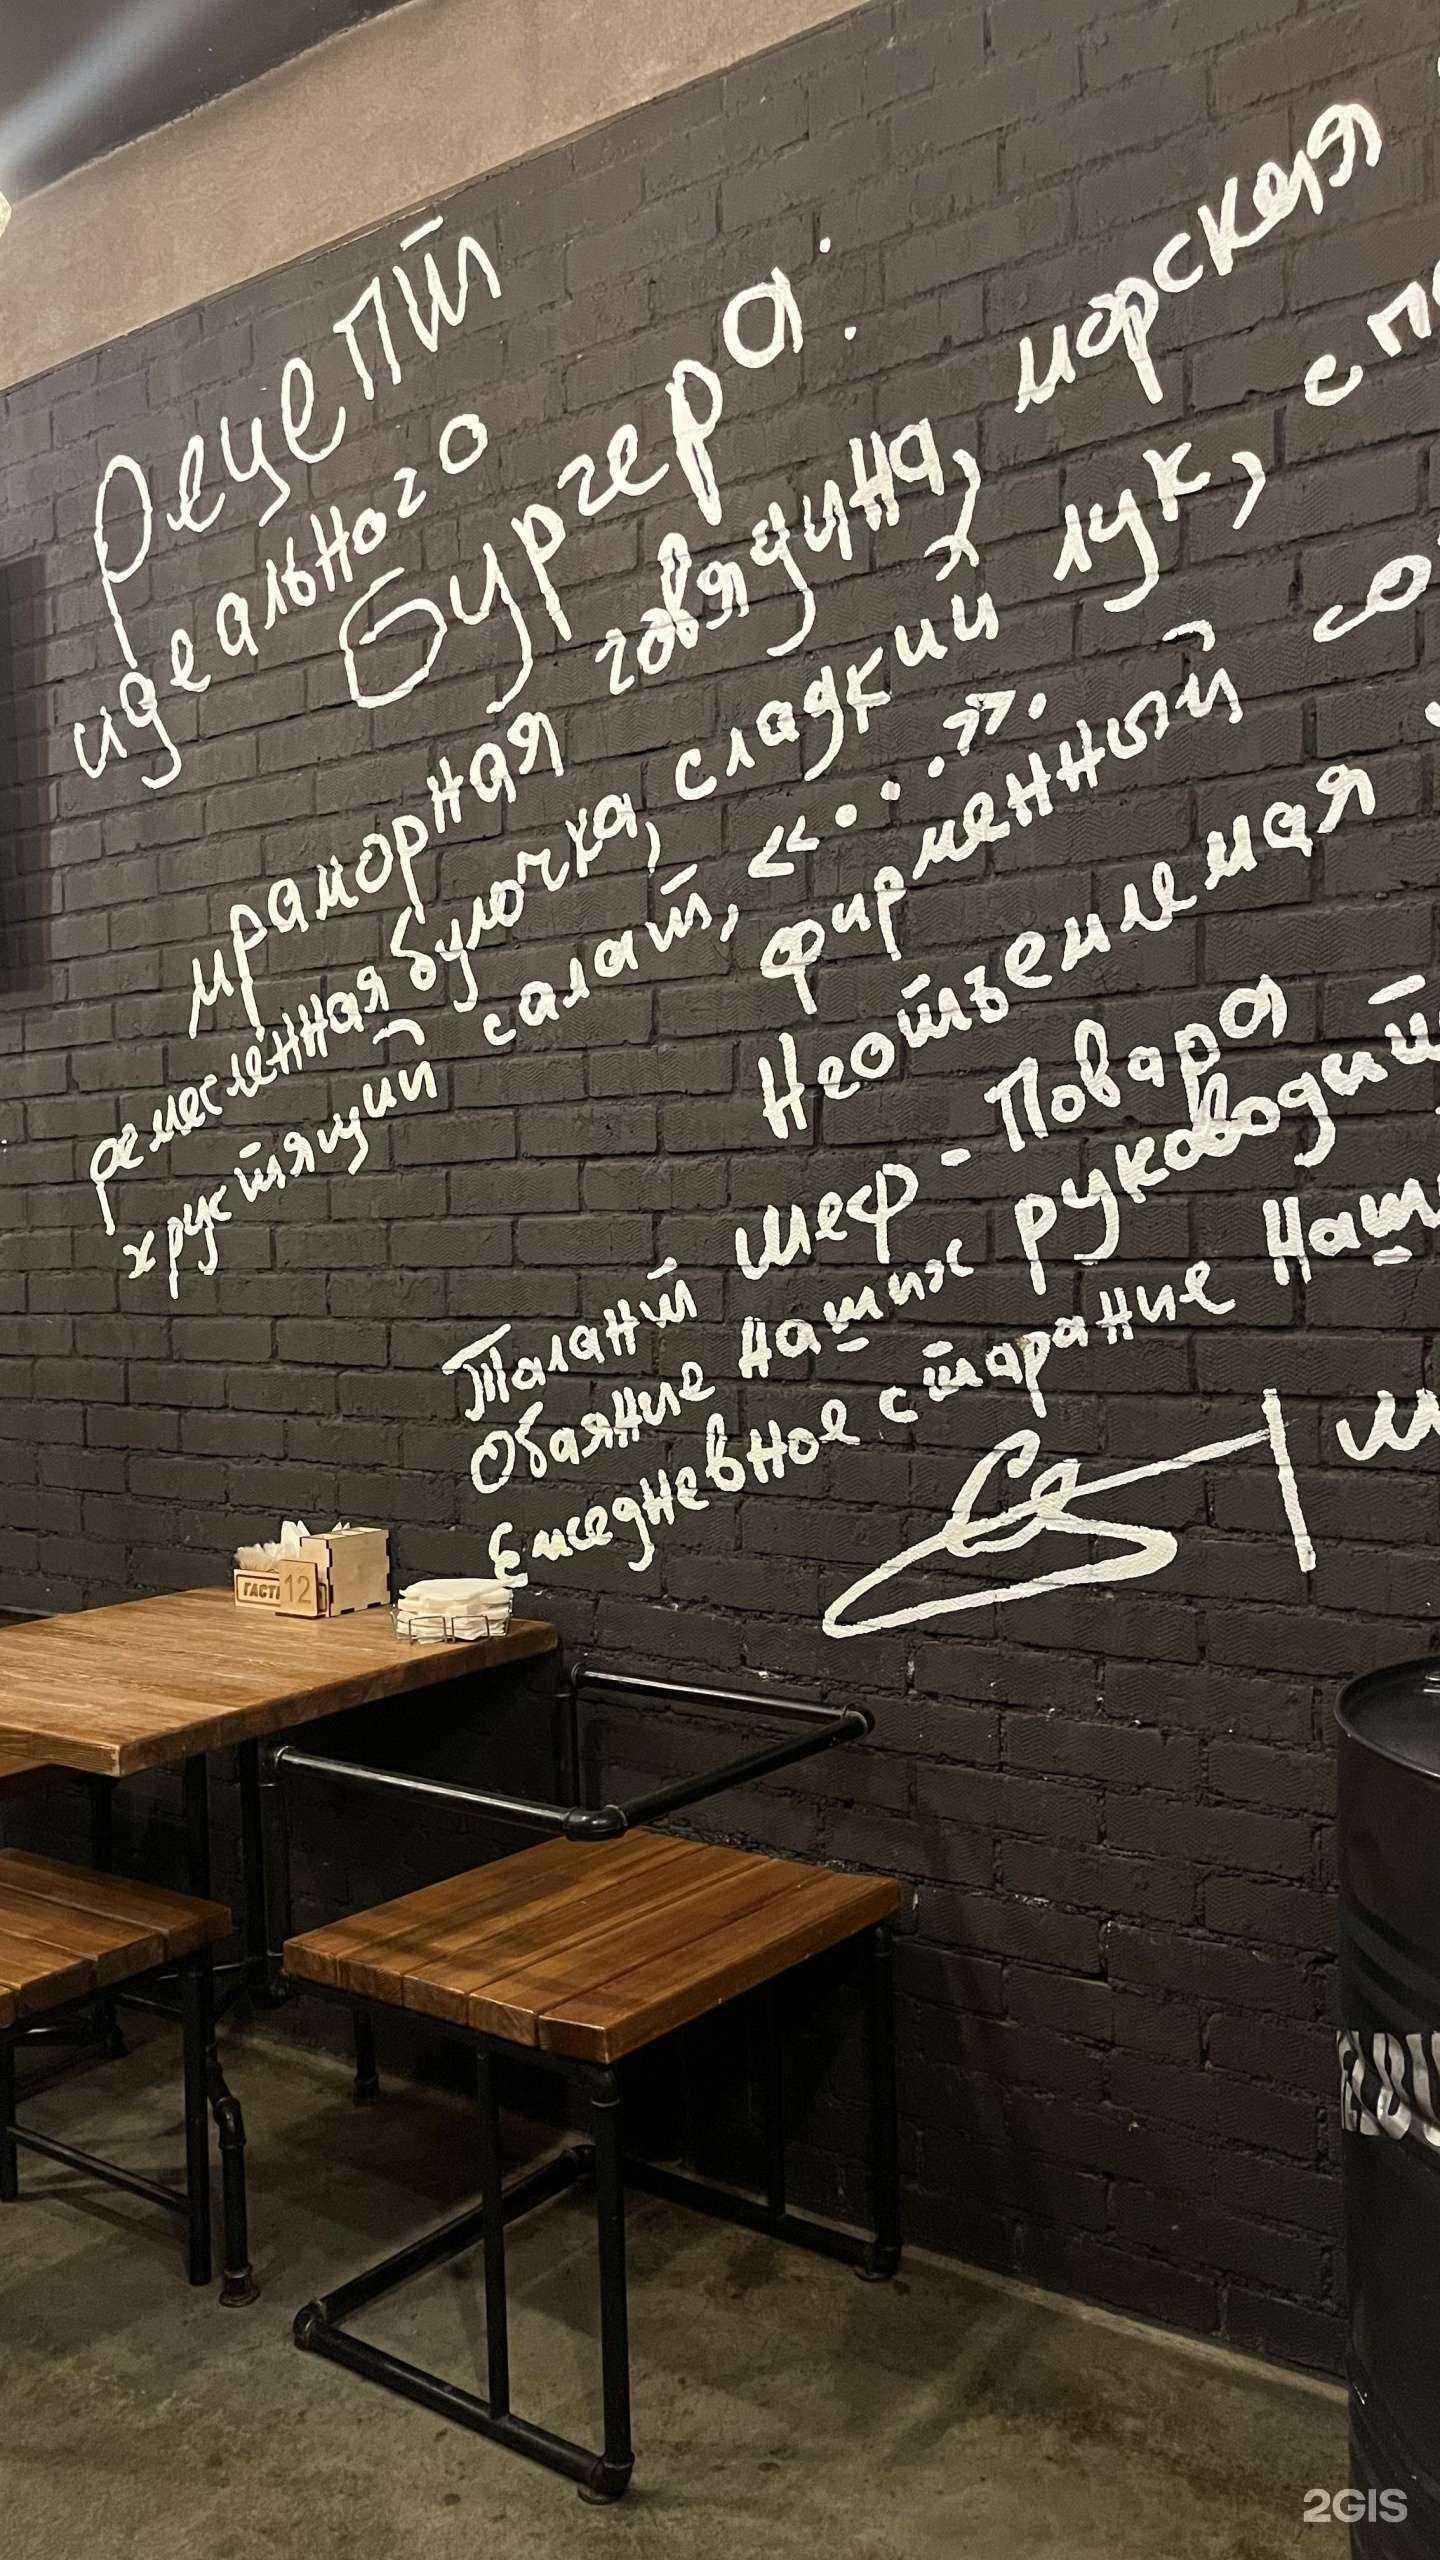 Рецепт
идеального
бургера:
мраморная говядина, морская
ремесленная булочка, сладкий лук, с
хрустящий салат, «....».
фирменный
Неотъемлемая
Талант шеф-повара
Обаяние наших руководит
Ежедневное старание наш
ГАСТ
12
2GIS